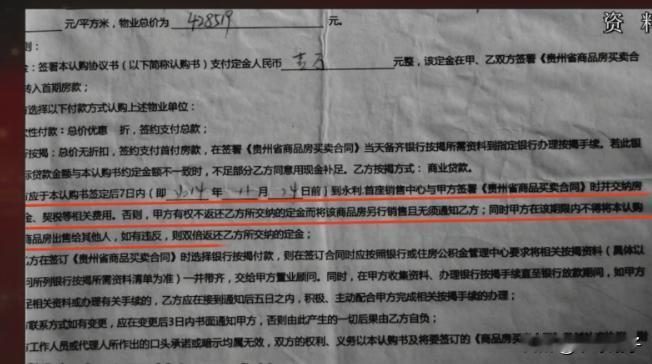 资料
元/平方米，物业总价为 428519 元。
则：
：签署本认购协议书（以下简称认购书）支付定金人民币 壹万 元整，该定金在甲、乙双方签署《贵州省商品房买卖合
转入首期房款；
方选择以下付款方式认购上述物业单位：
次性付款：总价优惠 折，签约支付总款；
按揭：总价无折扣，签约支付首付房款，在签署《贵州省商品房买卖合同》当天备齐银行按揭所需资料到指定银行办理按揭手续。若此银
际贷款金额与本认购书约定金额不一致时，不足部分乙方同意用现金补足。乙方按揭方式：商业贷款。
方应于本认购书签定后7日内（即 2014 年 11 月 24日前）到永利.首座销售中心与甲方签署《贵州省商品房买卖合同》时并交纳房
金、契税等相关费用。否则，甲方有权不返还乙方所交纳的定金而将该商品房另行销售且无须通知乙方；同时甲方在该期限内不得将本认购
商品房出售给其他人，如有违反，则双倍返还乙方所交纳的定金；
乙方在签订《贵州省商品房买卖合同》时选择银行按揭付款，则在签订合同时应按照银行或住房公积金管理中心要求将相关按揭资料（具体以
问所列银行按揭所需资料清单为准）一并带齐，交给甲方置业顾问。同时，在甲方收集资料、办理银行按揭手续直至银行放款期间，如甲方
足相关资料或办理有关手续的，乙方应在接到通知后五日之内，积极、主动配合甲方完成相关按揭手续的办理；
方联系方式如有变更，应在变更后3日内书面通知甲方，否则由此产生的一切后果由乙方自负；
方工作人员或代理人所作出的口头承诺或暗示均属无效，双方的权利、义务以本认购书及将要签订的《商品房买